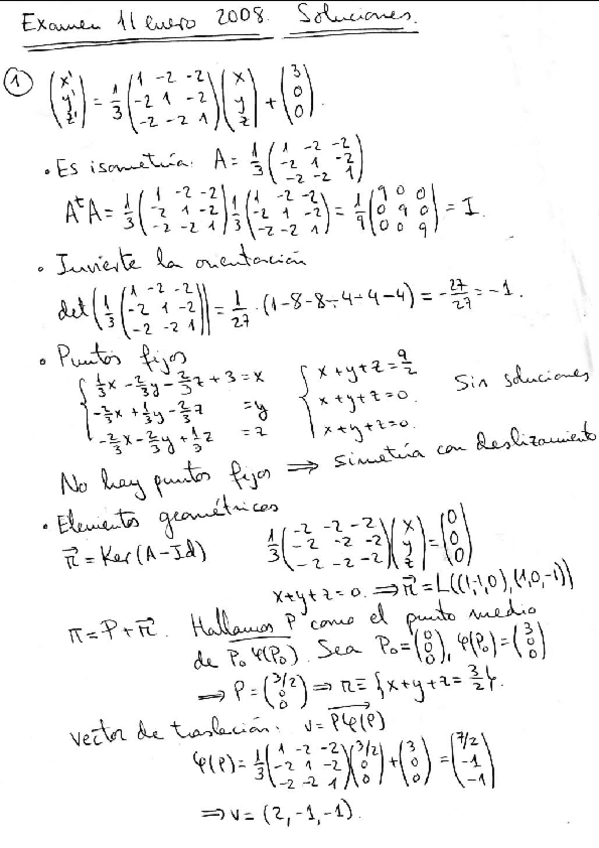 Examen 11 Enero 2008. Soluciones.
① (x' y' z') = 1/3 (1 -2 -2; -2 1 -2; -2 -2 1) (x y z) + (3 0 0).
• Es isometría: A = 1/3 (1 -2 -2; -2 1 -2; -2 -2 1)
AᵗA = 1/3 (1 -2 -2; -2 1 -2; -2 -2 1) 1/3 (1 -2 -2; -2 1 -2; -2 -2 1) = 1/9 (9 0 0; 0 9 0; 0 0 9) = I.
• Invierte la orientación
det (1/3 (1 -2 -2; -2 1 -2; -2 -2 1)) = 1/27 · (1-8-8-4-4-4) = -27/27 = -1.
• Puntos fijos
{ 1/3x - 2/3y - 2/3z + 3 = x { x+y+z = 9/2
-2/3x + 1/3y - 2/3z = y x+y+z=0. Sin soluciones
-2/3x - 2/3y + 1/3z = z x+y+z=0.
No hay puntos fijos ⟹ simetría con deslizamiento
• Elementos geométricos
π⃗ = Ker(A-Id) 1/3 (-2 -2 -2; -2 -2 -2; -2 -2 -2) (x y z) = (0 0 0)
x+y+z=0. ⟹ π⃗ = L((1,-1,0),(1,0,-1))
π = P + π⃗. Hallamos P como el punto medio
de P₀ φ(P₀). Sea P₀ = (0 0 0), φ(P₀) = (3 0 0)
⟹ P = (3/2 0 0) ⟹ π ≡ {x+y+z = 3/2}.
Vector de traslación: v = Pφ(P)
φ(P) = 1/3 (1 -2 -2; -2 1 -2; -2 -2 1) (3/2 0 0) + (3 0 0) = (7/2 -1 -1)
⟹ v = (2, -1, -1).